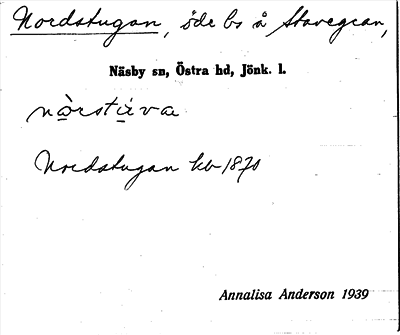 Nordstugan, öde bs å Stavegean,
Näsby sn, Östra hd, Jönk. l.
nòrstúva
Nordstugan kb 1870
Annalisa Anderson 1939